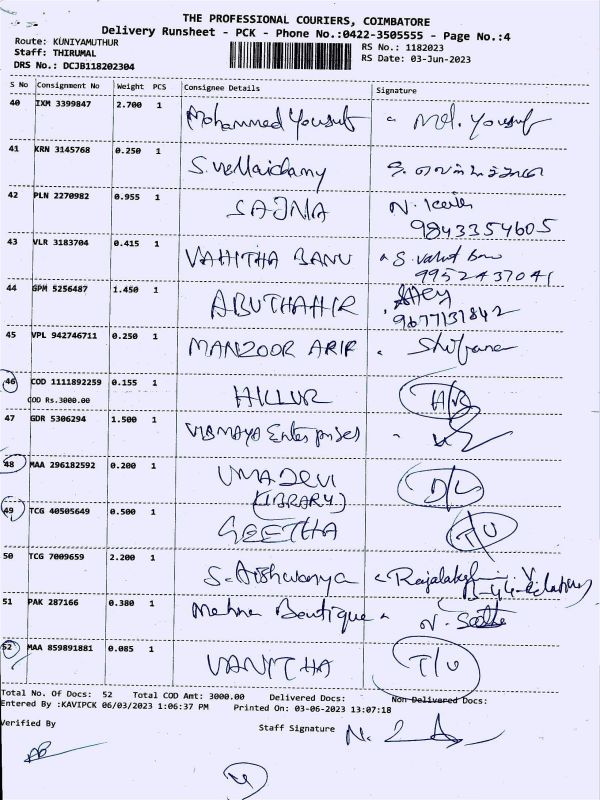 THE PROFESSIONAL COURIERS, COIMBATORE
Delivery Runsheet - PCK - Phone No.:0422-3505555 - Page No.:4
Route: KUNIYAMUTHUR RS No.: 1182023
Staff: THIRUMAL RS Date: 03-Jun-2023
DRS No.: DCJB118202304
S No Consignment No Weight PCS Consignee Details Signature
40 IXM 3399847 2.700 1 Mohammed Yousuf Md. Yousuf
41 KRN 3145768 0.250 1 S. Vellaichamy
42 PLN 2270982 0.955 1 SAJNA N.
9843354605
43 VLR 3183704 0.415 1 VAHITHA BANU S.
9952437041
44 GPM 5256487 1.450 1 ABUTHAHIR
9677131842
45 VPL 942746711 0.250 1 MANZOOR ARIF
46 COD 1111892259 0.155 1 HILLUR
COD Rs.3000.00
47 GDR 5306294 1.500 1 Enterprises
48 MAA 296182592 0.200 1 UMADEVI D/L
(LIBRARY)
49 TCG 40505649 0.500 1 GEETHA T/U
50 TCG 7009659 2.200 1 S. Aishwarya
51 PAK 287166 0.380 1 Boutique
52 MAA 859891881 0.085 1 VANITHA T/U
Total No. Of Docs: 52 Total COD Amt: 3000.00 Delivered Docs: Non Delivered Docs:
Entered By :KAVIPCK 06/03/2023 1:06:37 PM Printed On: 03-06-2023 13:07:18
Verified By Staff Signature